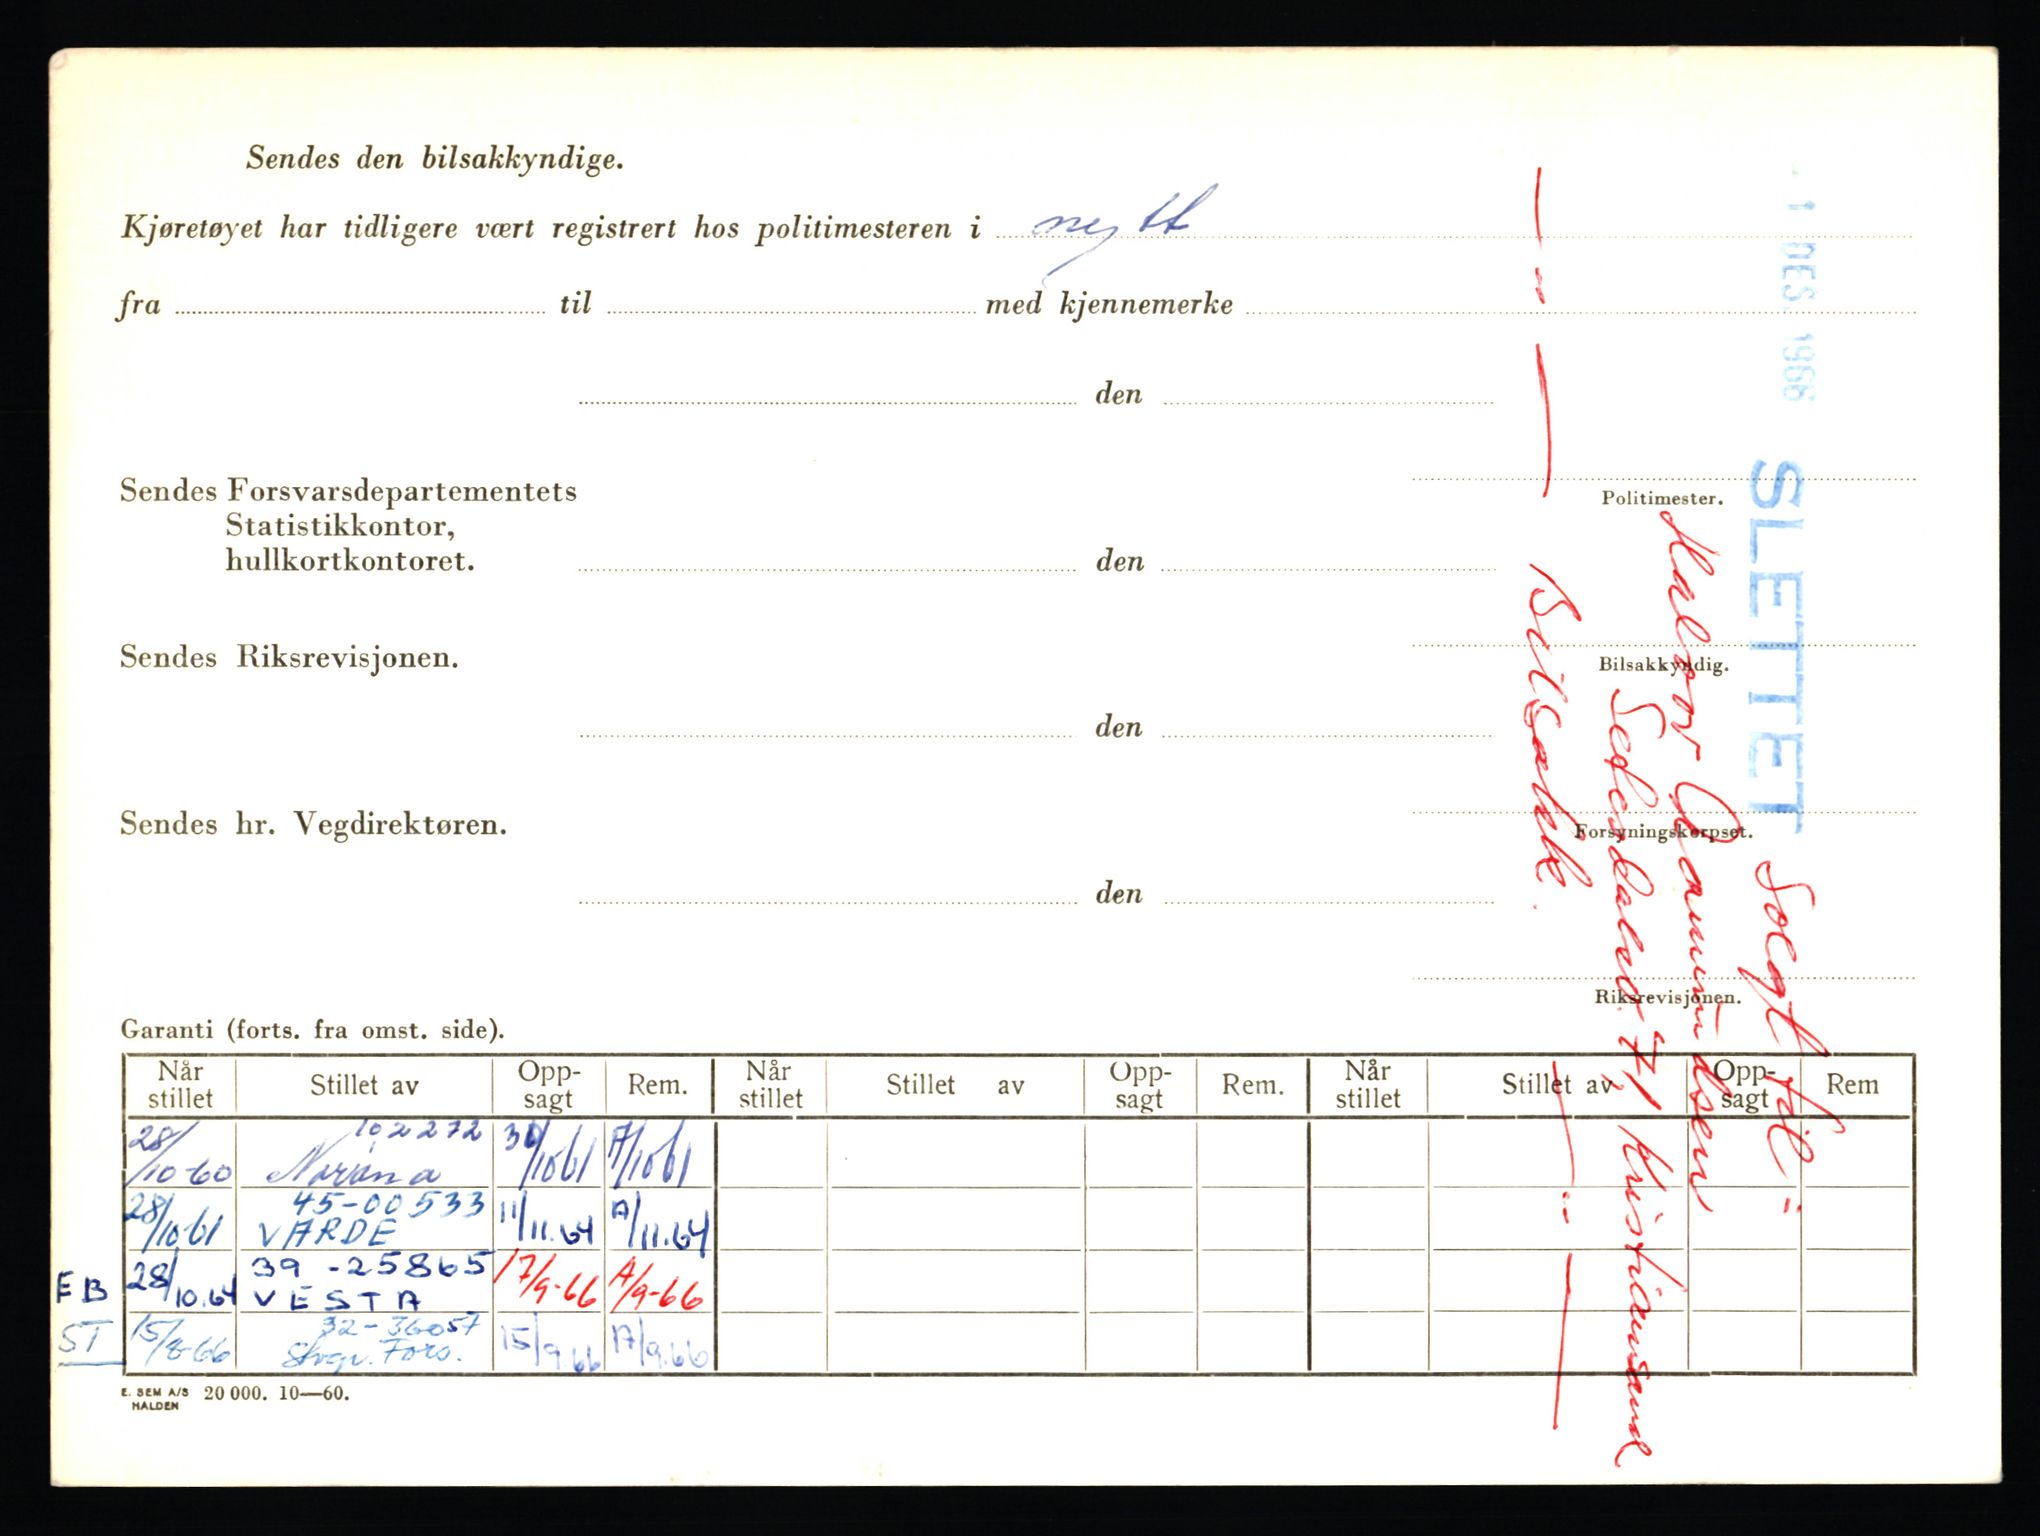 Sendes den bilsakkyndige.
Kjøretøyet har tidligere vært registrert hos politimesteren i nytt
fra til med kjennemerke
den
Politimester.
Sendes Forsvarsdepartementets
Statistikkontor,
hullkortkontoret. den
Bilsakkyndig.
Sendes Riksrevisjonen.
den
Forsyningskorpset.
Sendes hr. Vegdirektøren.
den
Riksrevisjonen.
- 1 DES. 1966
SLETTET Solgt til:
Halvor Amundsen
71 Kristiansand
— " — Bilsakk. — " —
Garanti (forts. fra omst. side).
Når stillet Stillet av Opp-sagt Rem. Når stillet Stillet av Opp-sagt Rem. Når stillet Stillet av Opp-sagt Rem
102272
28/10-60 Norøna 30/10-61 A/10-61
45-00533
28/10-61 VARDE 11/11.64 A/11.64
39-25865
EB 28/10.64 VESTA 17/9-66 A/9-66
32-36057
ST 15/8-66 Stvgr. Fors. 15/9.66 A/9.66
E. SEM A/S HALDEN 20 000. 10—60.